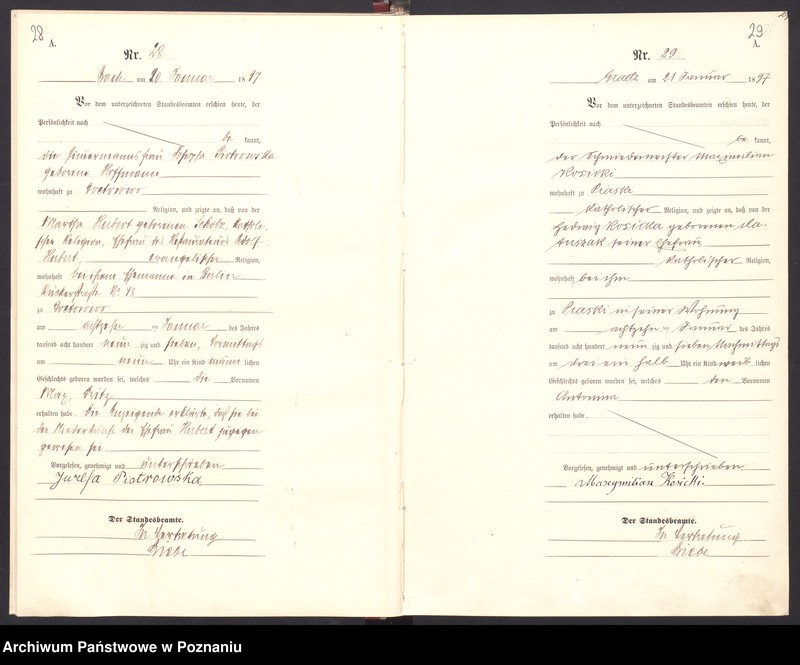 28
A.
Nr. 28
am 20. Januar 1897
Vor dem unterzeichneten Standesbeamten erschien heute, der
Persönlichkeit nach
be kannt,
die Zimmermannsfrau Piotrowska
geborene Hoffmann
wohnhaft zu
Religion, und zeigte an, daß von der
Martha Hubert geborenen Scholz, katholi-
schen Religion, Ehefrau des Restaurateurs Adolf
Hubert, evangelischer Religion,
wohnhaft bei ihrem Ehemanne in Berlin
No 18
zu
am achtzehn ten Januar des Jahres
tausend acht hundert neun zig und sieben, Vormittags
um neun Uhr ein Kind männ lichen
Geschlechts geboren worden sei, welches die Vornamen
Max, Fritz
erhalten habe. Die Anzeigende erklärte, daß sie bei
der Niederkunft der Ehefrau Hubert zugegen
gewesen sei.
Vorgelesen, genehmigt und unterschrieben
Piotrowska
Der Standesbeamte.
In Vertretung
29
A.
Nr. 29
Graetz am 21 Januar 1897
Vor dem unterzeichneten Standesbeamten erschien heute, der
Persönlichkeit nach
be kannt,
der Schmiedemeister Maximilian
Kosicki
wohnhaft zu Piaski
katholischer Religion, und zeigte an, daß von der
Hedwig Kosicka geborenen
seiner Ehefrau
katholischer Religion,
wohnhaft bei ihm
zu Piaski in seiner Wohnung
am achtzehn ten Januar des Jahres
tausend acht hundert neun zig und sieben Nachmittags
um drei ein halb Uhr ein Kind weib lichen
Geschlechts geboren worden sei, welches den Vornamen
Antonina
erhalten habe.
Vorgelesen, genehmigt und unterschrieben
Maxymilian Kosicki.
Der Standesbeamte.
In Vertretung.
Archiwum Państwowe w Poznaniu